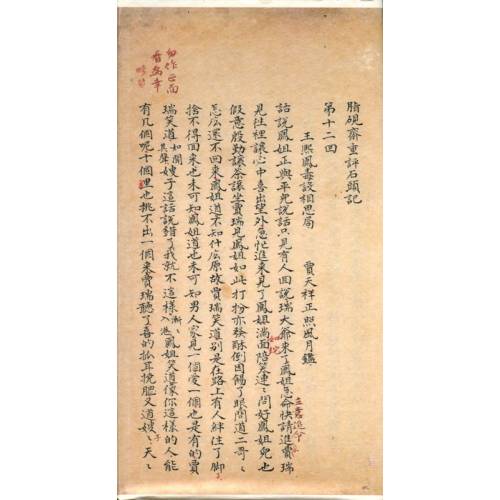 脂硯齋重評石頭記
第十二回
王熙鳳毒設相思局　賈天祥正照風月鑑
話說鳳姐正與平兒說話只見有人回說瑞大爺來了鳳姐命快請進賈瑞
立意追命
見往裡讓心中喜出望外急忙進來見了鳳姐滿面陪笑連〻問好鳳姐兒也
如蛇
假意殷勤讓茶讓坐賈瑞見鳳姐如此打扮亦發酥倒因餳了眼問道二哥〻
怎庅還不回來鳳姐道不知什庅原故賈瑞笑道別是在路上有人絆住了脚
捨不得回來也未可知鳳姐道也未可知男人家見一個愛一個也是有的賈
瑞笑道如聞其聲嫂子這話說錯了我就不這樣漸〻入港鳳姐笑道像你這樣的人能
有几個呢十個里也挑不出一個來賈瑞聽了喜的抓耳撓腮又道嫂〻天〻
子
勿作正面
看為幸
畸笏